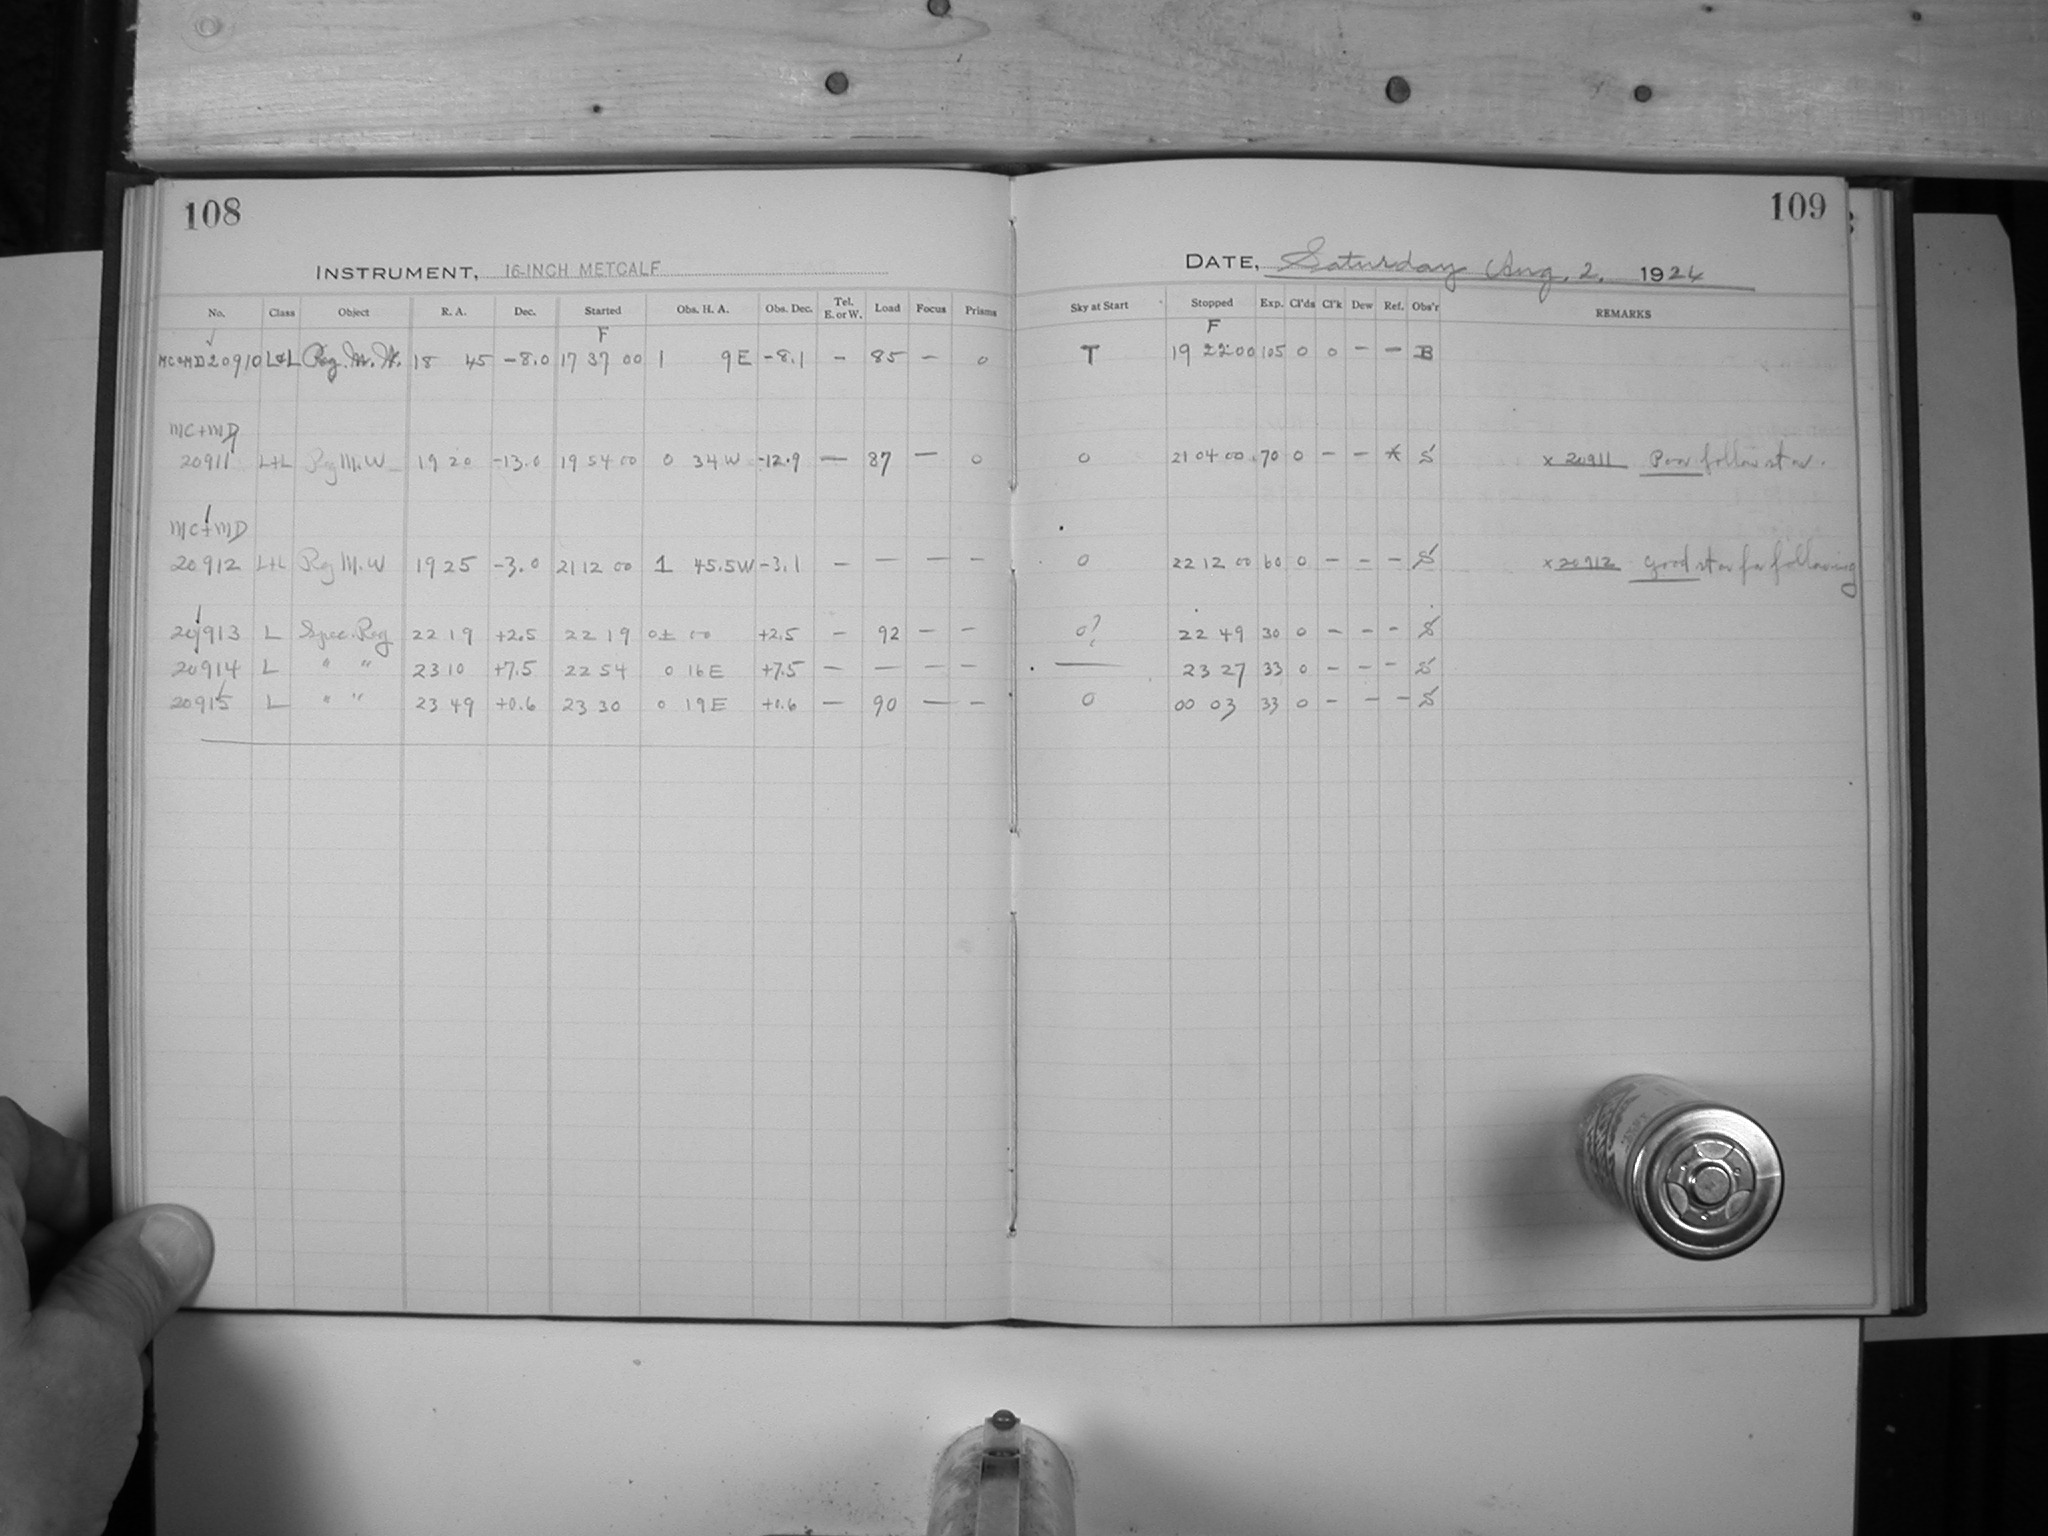 108
109
INSTRUMENT, 16-INCH METCALF
DATE, Saturday Aug. 2, 1924
No. Class Object R. A. Dec. Started Obs. H. A. Obs. Dec. Tel. E. or W. Load Focus Prisms Sky at Start Stopped Exp. Cl'ds Cl'k Dew Ref. Obs'r REMARKS
F F
MC+MD 20910 L+L Reg. M. W. 18 45 -8.0 17 37 00 1 9 E -8.1 - 85 - 0 T 19 22 00 105 0 0 - - B
MC+MD
20911 L+L Reg M. W 19 20 -13.0 19 54 00 0 34 W -12.9 — 87 — 0 0 21 04 00 70 0 - - * S x 20911 Poor follow star.
MC+MD
20912 L+L Reg M. W 19 25 -3.0 21 12 00 1 45.5W -3.1 - — — - 0 22 12 00 60 0 - - - S x 20912 Good star for following
20913 L Spec. Reg 22 19 +2.5 22 19 0± 00 +2.5 - 92 - - 0? 22 49 30 0 - - - S
20914 L " " 23 10 +7.5 22 54 0 16 E +7.5 - — - - — 23 27 33 0 - - - S
20915 L " " 23 49 +0.6 23 30 0 19 E +0.6 — 90 — - 0 00 03 33 0 - - - S